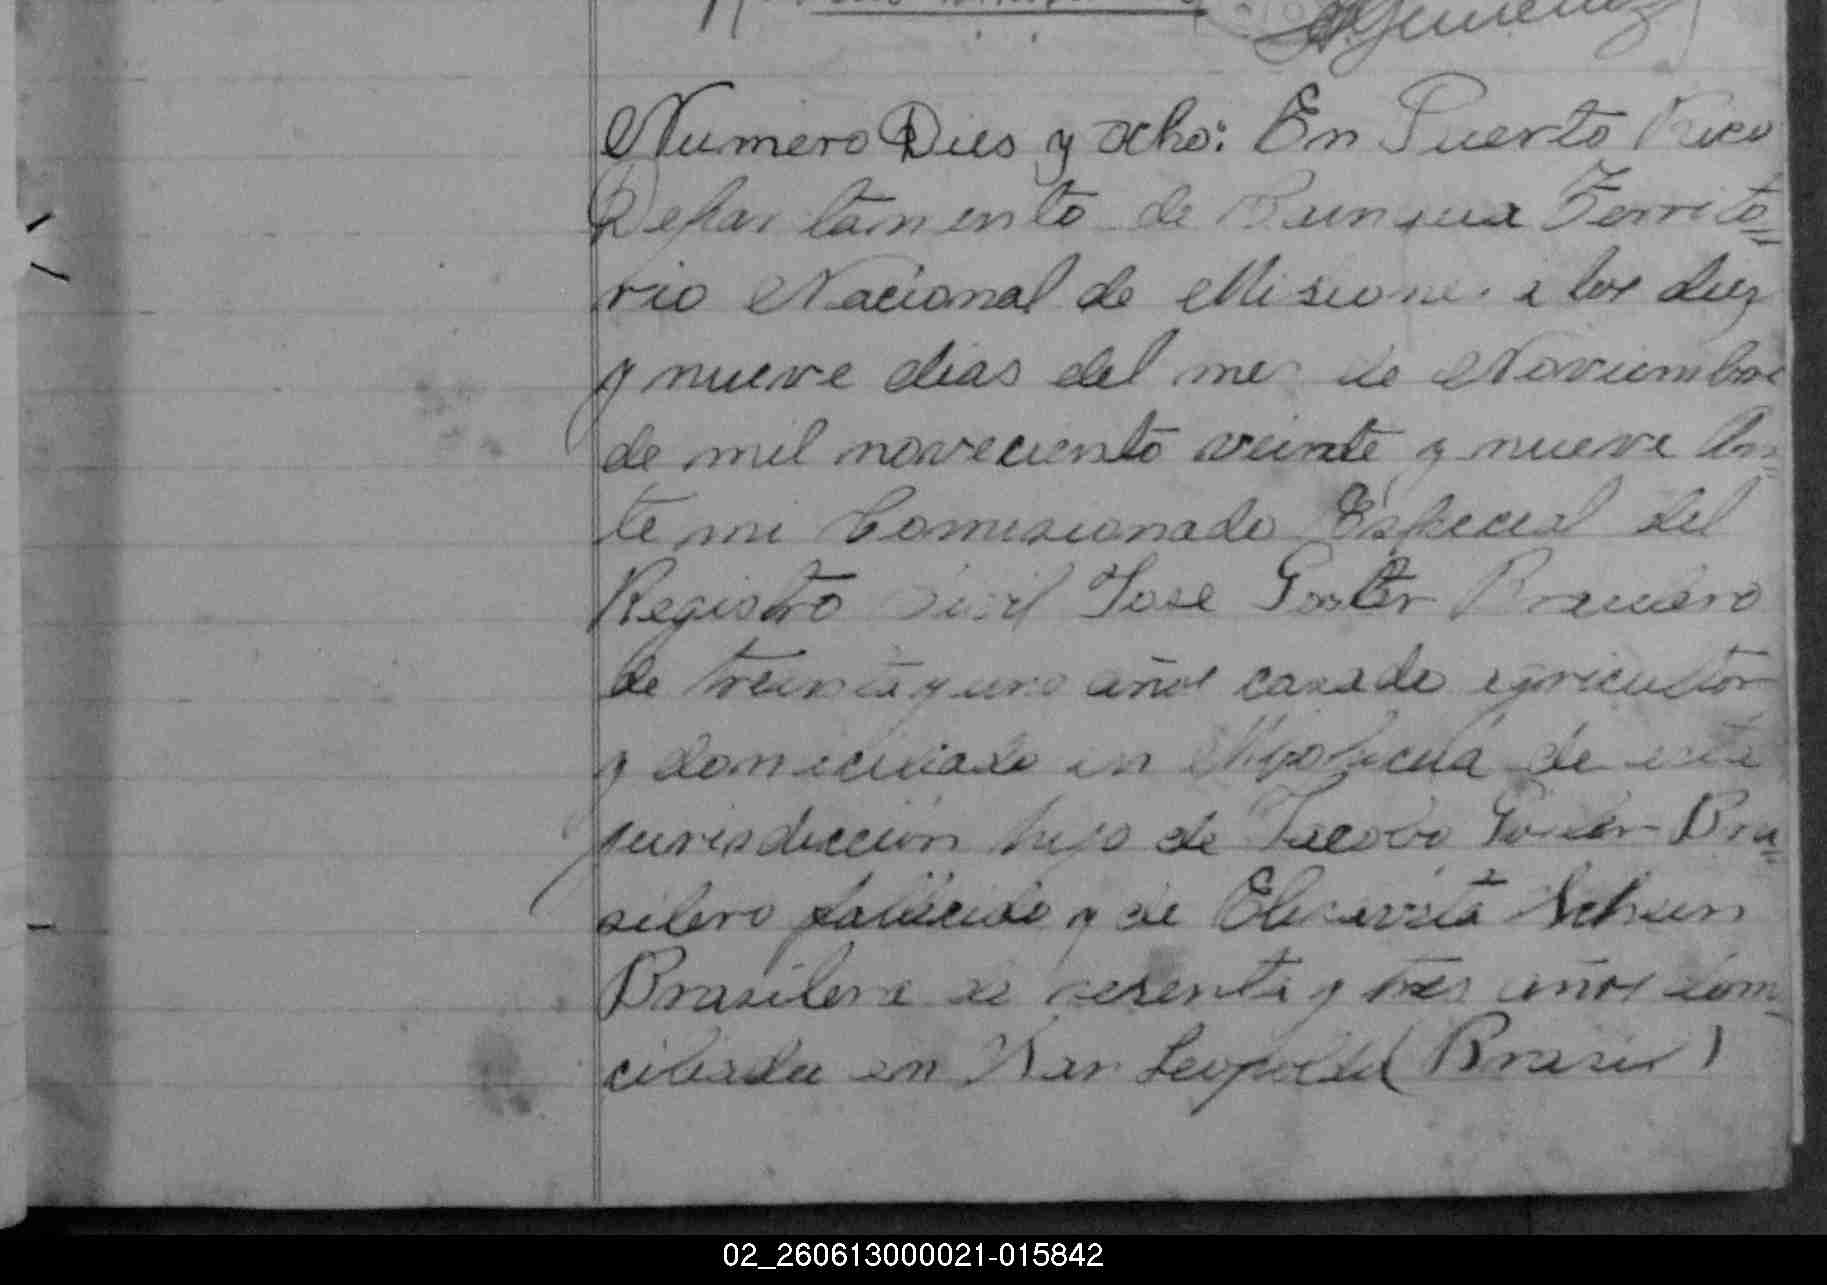 Numero Dies y ocho: En Puerto Rico
Departamento de Territo=
rio Nacional de Misiones a los diez
y nueve dias del mes de Noviembre
de mil noveciento veinte y nueve An=
te mi Comisionado Especial del
Registro Civil Jose Brasilero
de treinta y uno años casado agricultor
y domiciliado en de este
jurisdiccion hijo de Jacobo Bra=
silero fallecido y de Schun
Brasilera de sesenta y tres años domi
ciliada en San Leopoldo (Brasil)
02_260613000021-015842